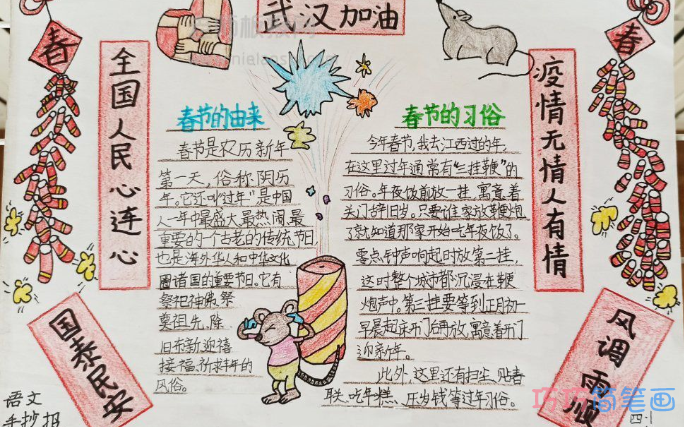 武汉加油
春
春
全国人民心连心
疫情无情人有情
春节的由来
春节是农历新年
第一天，俗称阴历
年。它还叫"过年"是中国
人一年中最盛大、最热闹、最
重要的一个古老的传统节日
也是海外华人和中华文化
圈诸国的重要节日。它有
祭祀神佛、祭
奠祖先、除
旧布新、迎禧
接福、祈求丰年的
风俗。
春节的习俗
今年春节，我去江西过的年，
在这里过年通常有"三挂鞭"的
习俗。年夜饭前放一挂，寓意着
关门辞旧岁。只要谁家放鞭炮
了就知道那家开始吃年夜饭了。
零点钟声响起时放第二挂，
这时整个城市都沉浸在鞭
炮声中。第三挂要等到正月初一
早晨起来开门后再放，寓意着开门
迎新年。
此外，这里还有扫尘、贴春
联、吃年糕、压岁钱等过年习俗。
国泰民安
风调雨顺
语文
手抄报
巧巧简笔画
四·1